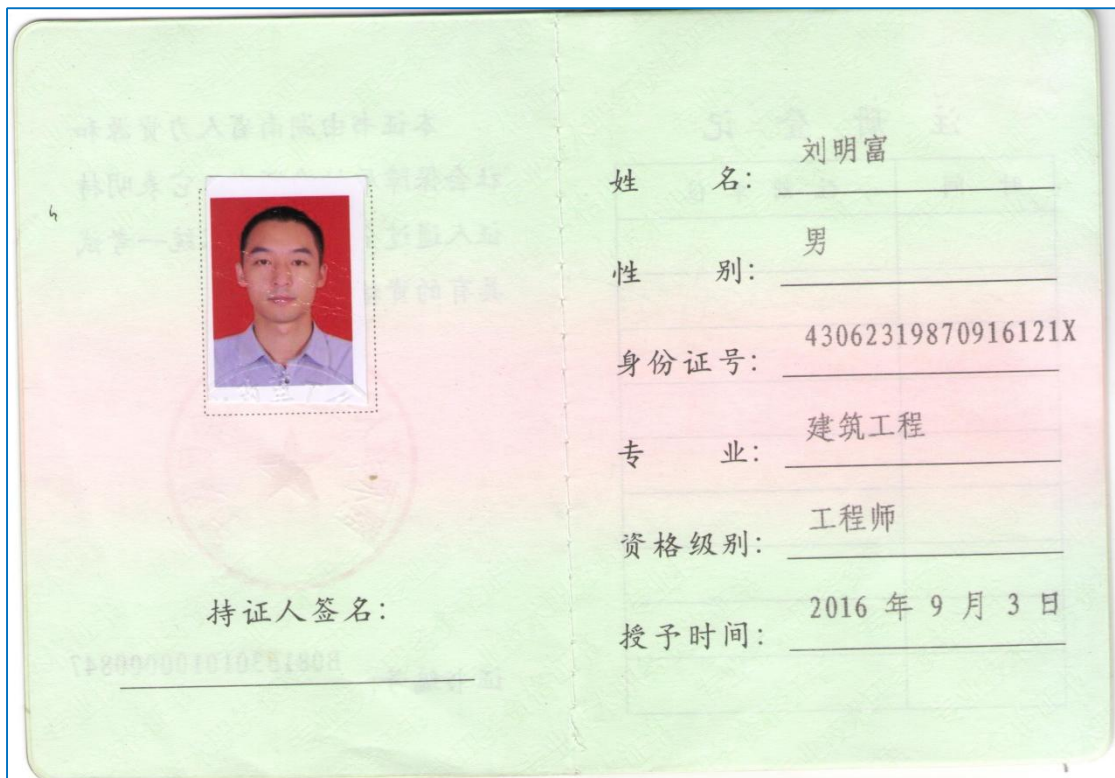 持证人签名:
姓 名: 刘明富
性 别: 男
身份证号: 43062319870916121X
专 业: 建筑工程
资格级别: 工程师
授予时间: 2016 年 9 月 3 日